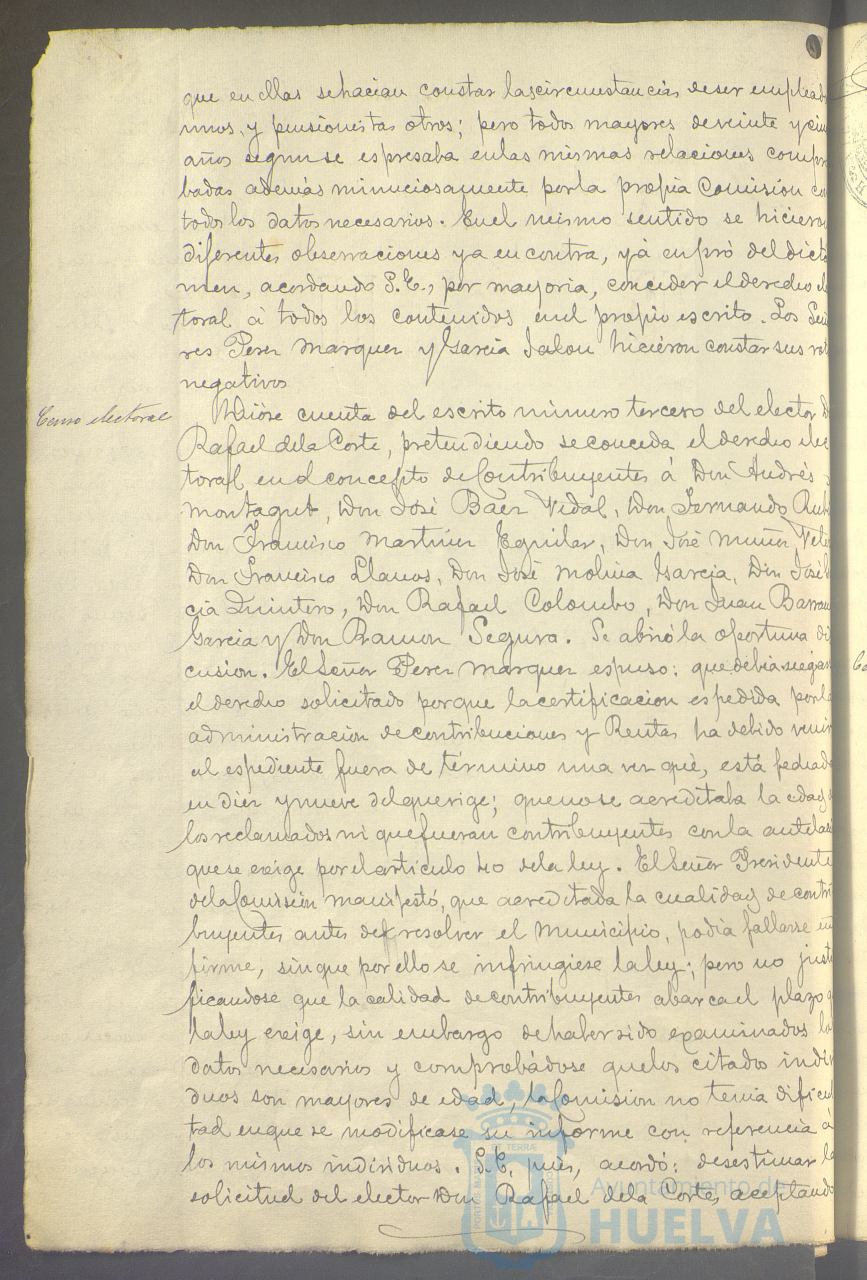 que en ellas se hacian constar las circunstancias de ser emplead
unos, y pensionistas otros; pero todos mayores de veinte y cin
años segun se espresaba en las mismas relaciones compr
badas además minuciosamente por la propia Comision co
todos los datos necesarios. En el mismo sentido se hiciero
diferentes observaciones ya en contra, yá en pró del dicta
men, acordando S.E., por mayoria, conceder el derecho el
toral á todos los contenidos en el propio escrito. Los Seño
res Perez Marquez y Garcia Jalon hiciéron constar sus vot
negativos
Censo electoral
Dióse cuenta del escrito número tercero del elector D
Rafael de la Corte, pretendiendo se conceda el derecho elec
toral en el concepto de Contribuyentes á Don Andrés
Montagut, Don José Baez Vidal, Don Fernando Rub
Don Francisco Martinez Eguilaz, Don José Muñoz Vele
Don Francisco Llanos, Don José Molina Garcia, Don José
cia Quintero, Don Rafael Colombo, Don Juan Barran
Garcia y Don Ramon Segura. Se abrió la oportuna di
cusion. El Señor Perez Marquez espuso: que debia negars
el derecho solicitado porque la certificacion espedida por la
administracion de contribuciones y Rentas ha debido venir
al espediente fuera de término una vez qué, está fechada
en diez y nueve del que rige; que no se acreditaba la edad
los reclamados ni que fueran contribuyentes con la antelac
que se exige por el articulo 40 de la ley. El Señor Presidente
de la Comisión manifestó, que acreditada la cualidad de contri
buyentes antes de resolver el Municipio, podia fallarse en
firme, sin que por ello se infringiese la ley; pero no justi
ficandose que la calidad de contribuyentes abarca el plazo q
la ley exige, sin embargo de haber sido examinados lo
datos necesarios y comprobádose que los citados indiv
duos son mayores de edad, la Comision no tenia dificul
tad en que se modificase su informe con referencia á
los mismos individuos. S.E. pues, acordó: desestimar la
solicitud del elector Don Rafael de la Corte, aceptando
Ayuntamiento de
HUELVA